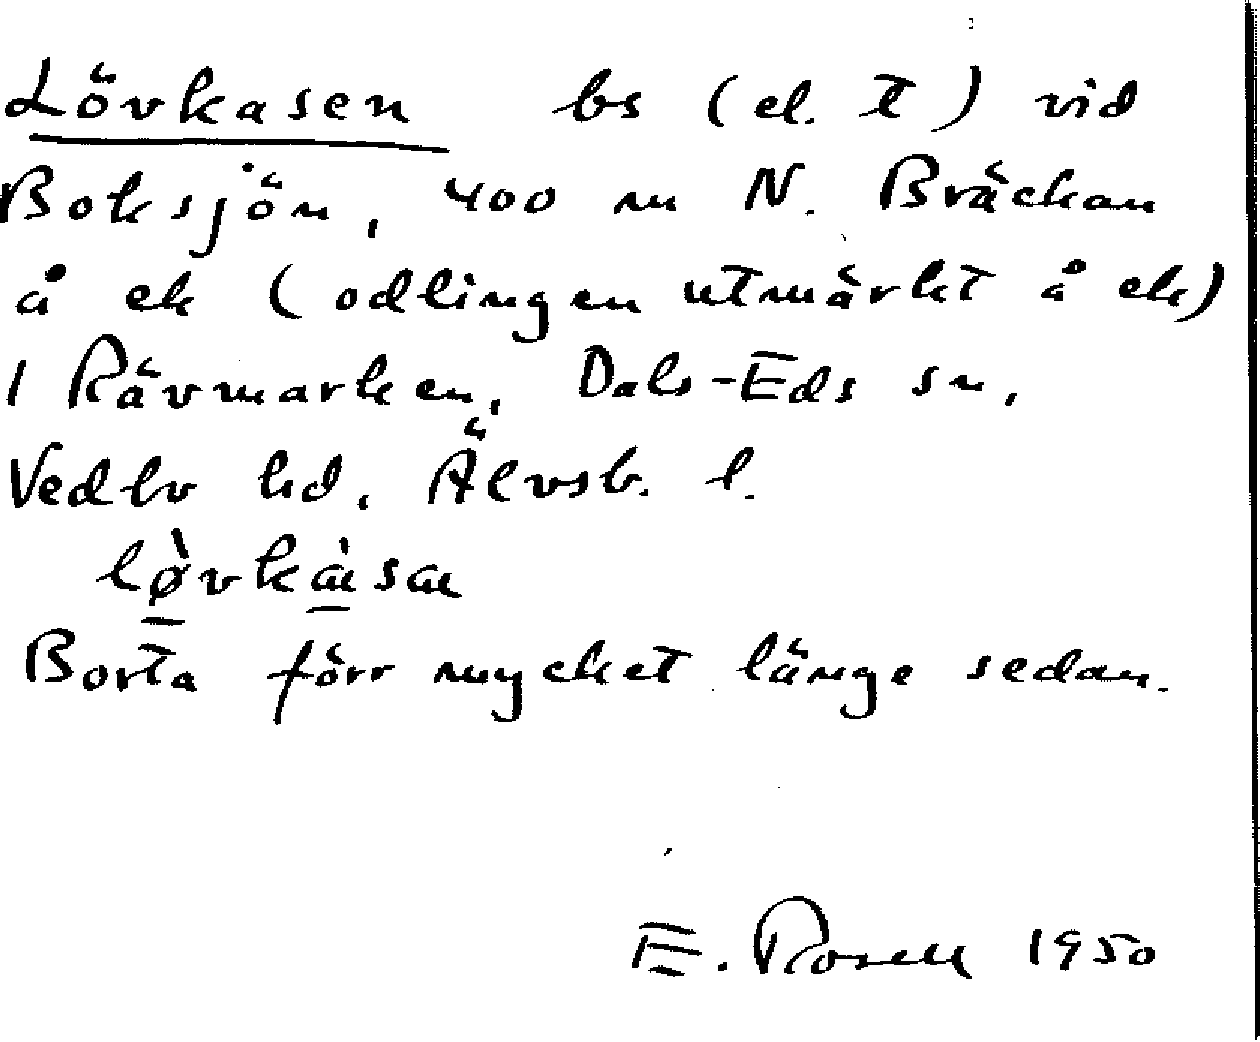 Lövkasen bs (el. t) vid
Boksjön, 400 m N. Bräckan
å ek (odlingen utmärkt å ek)
i Rävmarken, Dals-Eds sn,
Vedbo hd, Älvsb. l.
Borta förr mycket länge sedan.
E. Rosell 1950